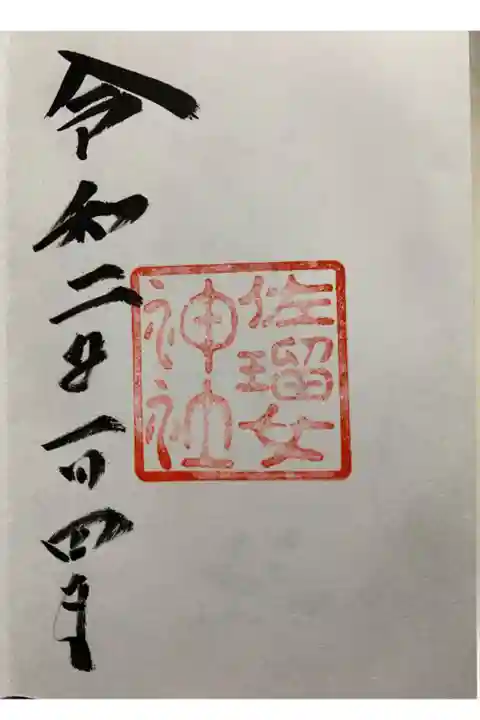 佐瑠女
神社
令和二年一月四日